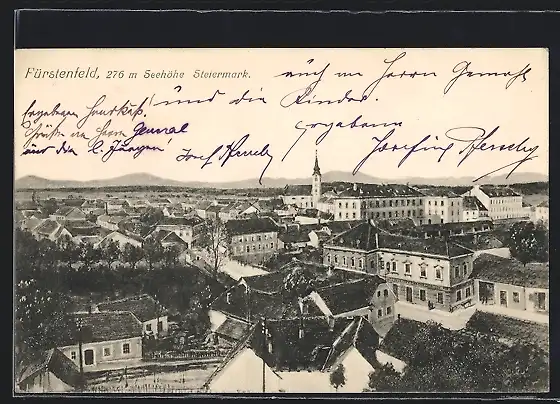 Fürstenfeld, 276 m Seehöhe Steiermark.
auch an Herrn Gemahl
und die Kinder
Ergebenen Handkuß.
Grüße an Herrn General
und die l. Jungen!
Josef Persehy
ergebene
Josefine Persehy